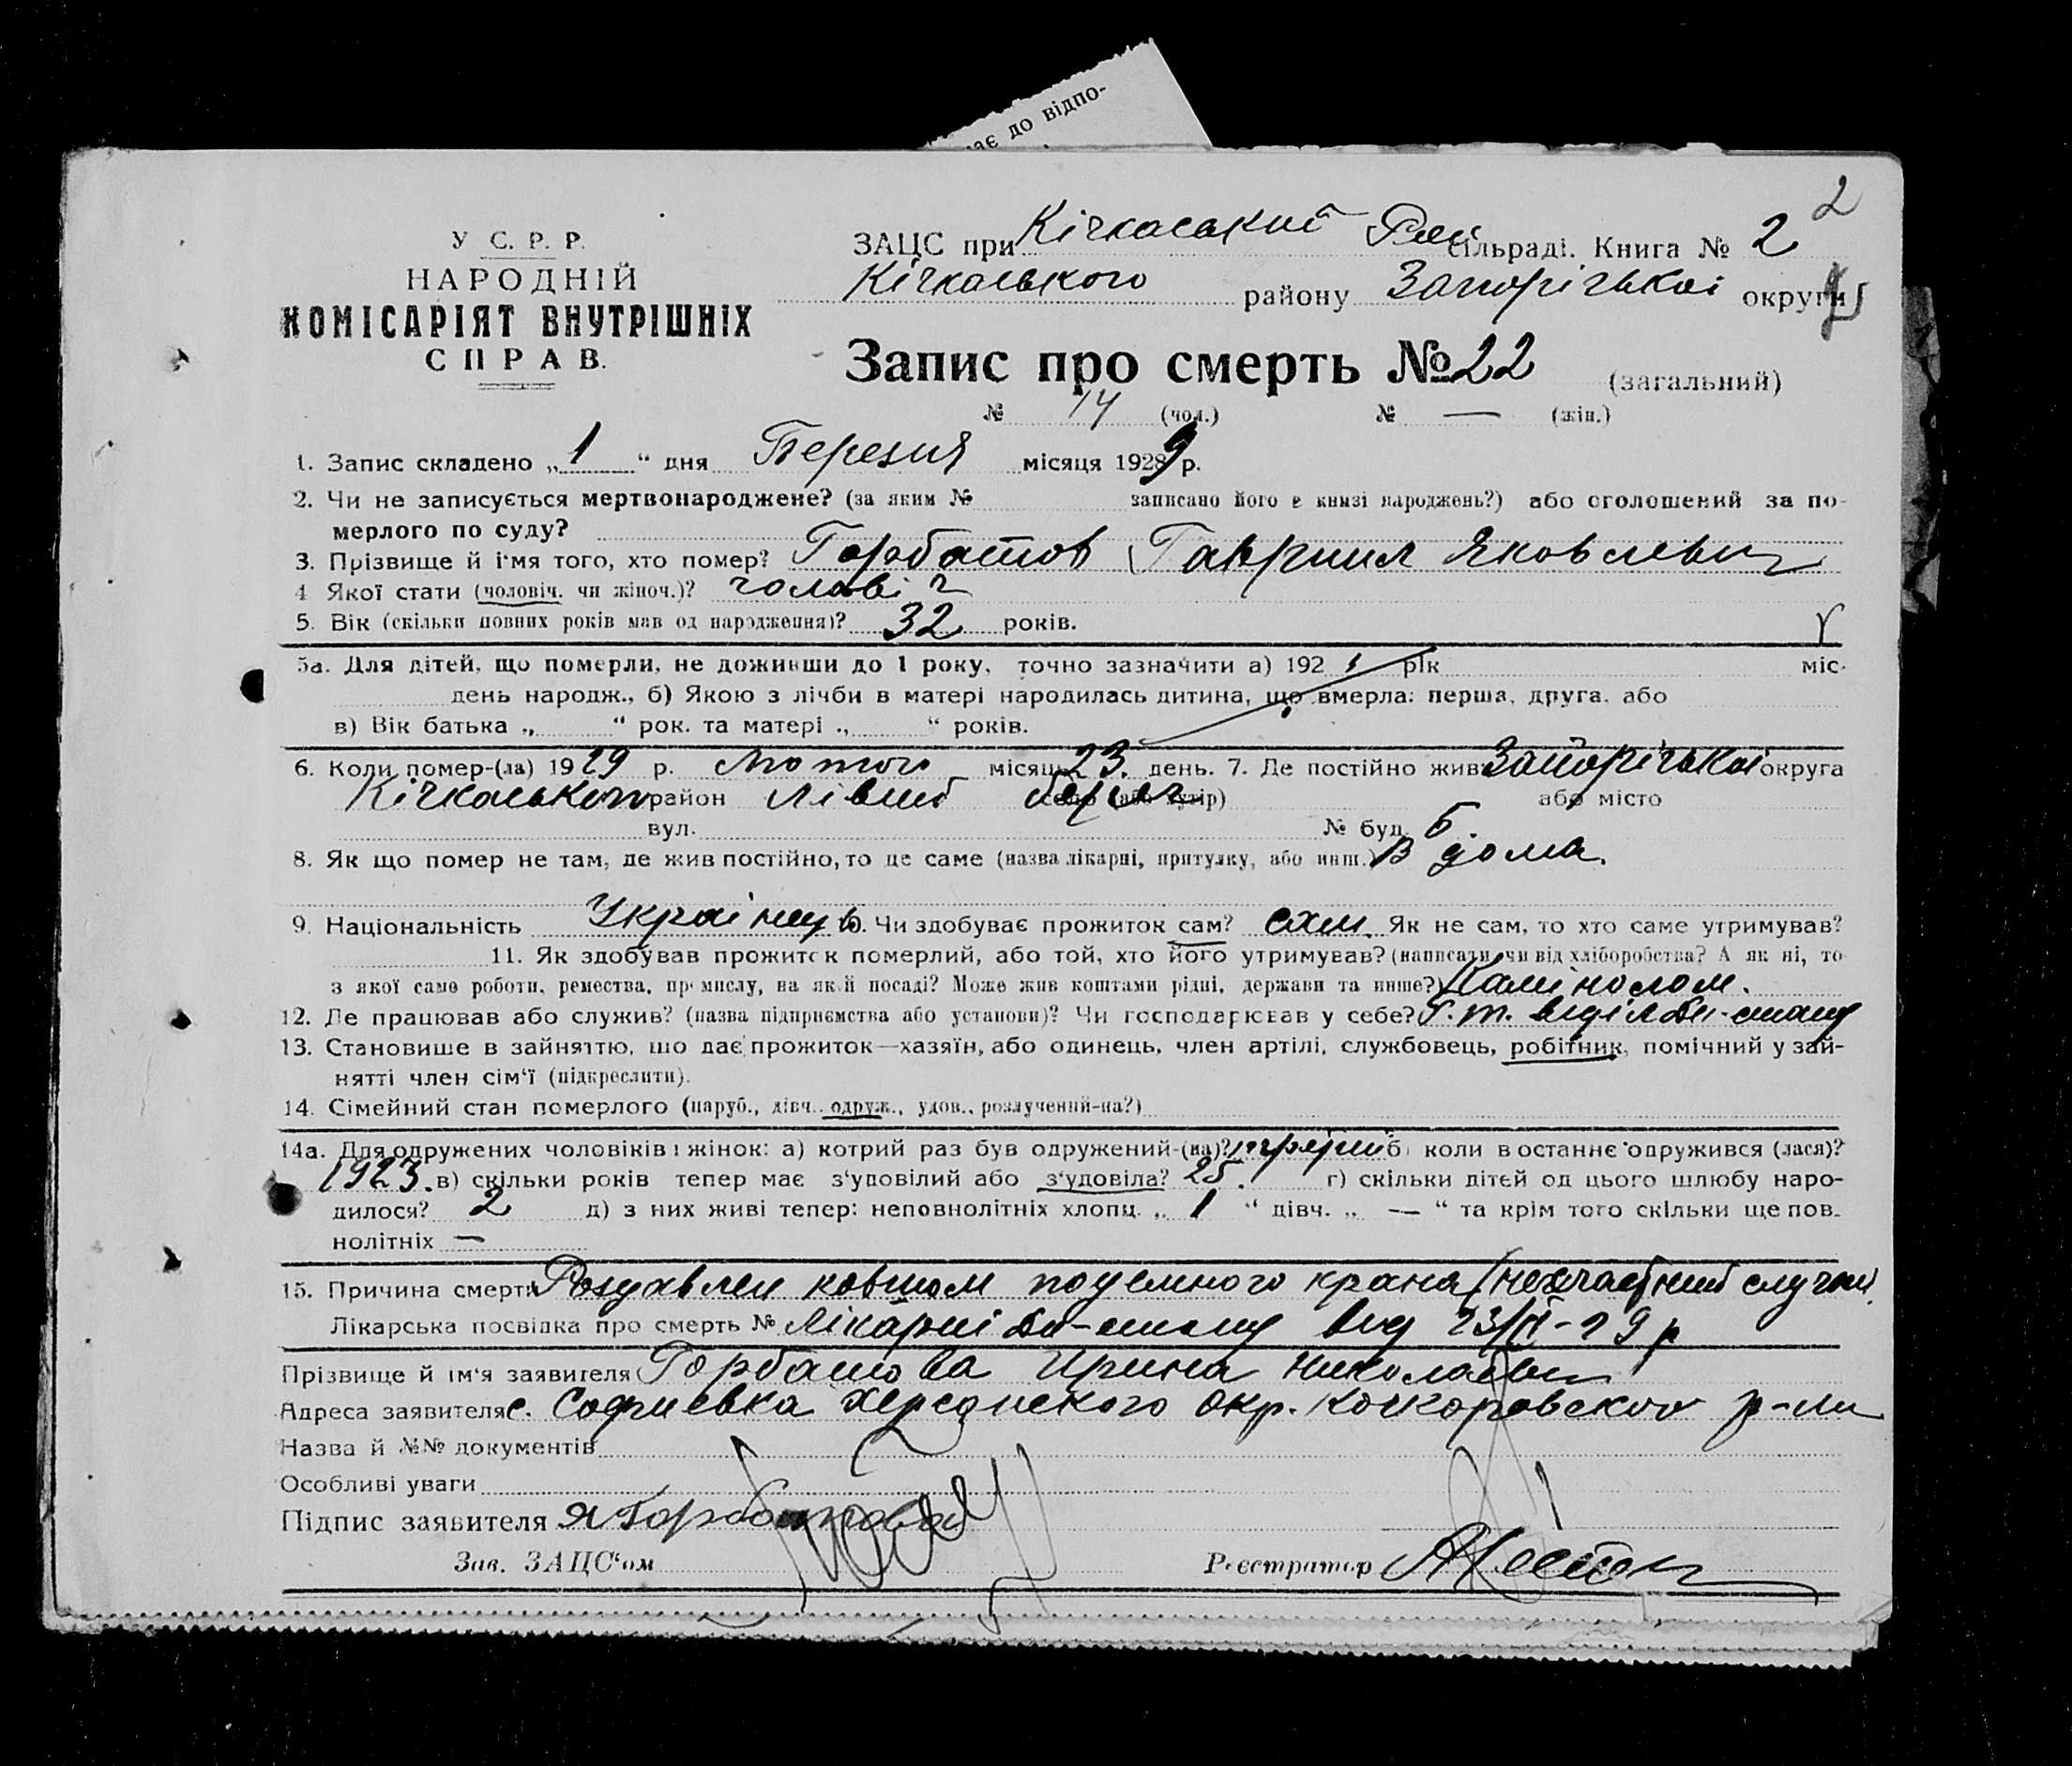 ає до відпо-
2
У С. Р. Р.
НАРОДНІЙ
КОМІСАРІЯТ ВНУТРІШНІХ
СПРАВ.
ЗАЦС при Кічкаський Рай сільраді. Книга № 2
Кічкаського району Запорізької округи
Запис про смерть № 22 (загальний)
№ 14 (чол.) № — (жін.)
1. Запис складено „ 1 “ дня Березня місяця 1929 р.
2. Чи не записується мертвонароджене? (за яким № записано його в книзі народжень?) або оголошений за по-
мерлого по суду?
3. Прізвище й і'мя того, хто помер? Горбатов Гавриил Яковлевич
4 Якої стати (чоловіч. чи жіноч.)? чоловіч
5. Вік (скільки повних років мав од народження)? 32 років.
5а. Для дітей, що померли, не доживши до 1 року, точно зазначити а) 192 рік міс.
день народж., б) Якою з лічби в матері народилась дитина, що вмерла: перша, друга. або
в) Вік батька „ “ рок. та матері „ “ років.
6. Коли помер-(ла) 1929 р. Лютого місяць 23. день. 7. Де постійно жив Запорізької округа
Кічкаського район Лівий берег село (або хутір) або місто
вул. № буд. 5.
8. Як що помер не там, де жив постійно, то де саме (назва лікарні, притулку, або инш.) В дома.
9. Національність Українець 10. Чи здобуває прожиток сам? сам. Як не сам, то хто саме утримував?
11. Як здобував прожиток померлий, або той, хто його утримував? (написати, чи від хліборобства? А як ні, то
з якої саме роботи, ремества, промислу, на якій посаді? Може жив коштами рідні, держави та инше?) Камінолом.
12. Де працював або служив? (назва підприємства або установи)? Чи господарював у себе? Г.т. відділ Дн-стану
13. Становище в зайняттю, що дає прожиток—хазяїн, або одинець, член артілі, службовець, робітник, помічний у зай-
нятті член сім'ї (підкреслити).
14. Сімейний стан померлого (паруб., дівч., одруж., удов., розлучений-на?)
14а. Для одружених чоловіків і жінок: а) котрий раз був одружений-(на)? перший б) коли в останнє одружився (лася)?
1923. в) скільки років тепер має з'уповілий або з'удовіла? 25. г) скільки дітей од цього шлюбу наро-
дилося? 2 д) з них живі тепер: неповнолітніх хлопц. „ 1 “ дівч. „ — “ та крім того скільки ще пов-
нолітніх —
15. Причина смерти Роздавлен ковшом подемного крана (нещастний случай
Лікарська посвідка про смерть № Лікарні Дн-стану від 23/II-29 р
Прізвище й ім'я заявителя Горбатова Ирина Николаевн
Адреса заявителя с. Софиевка Херсонского Окр. Качкаровского р-на
Назва й №№ документів
Особливі уваги
Підпис заявителя Я Горбатова
Зав. ЗАЦС'ом Реєстратор